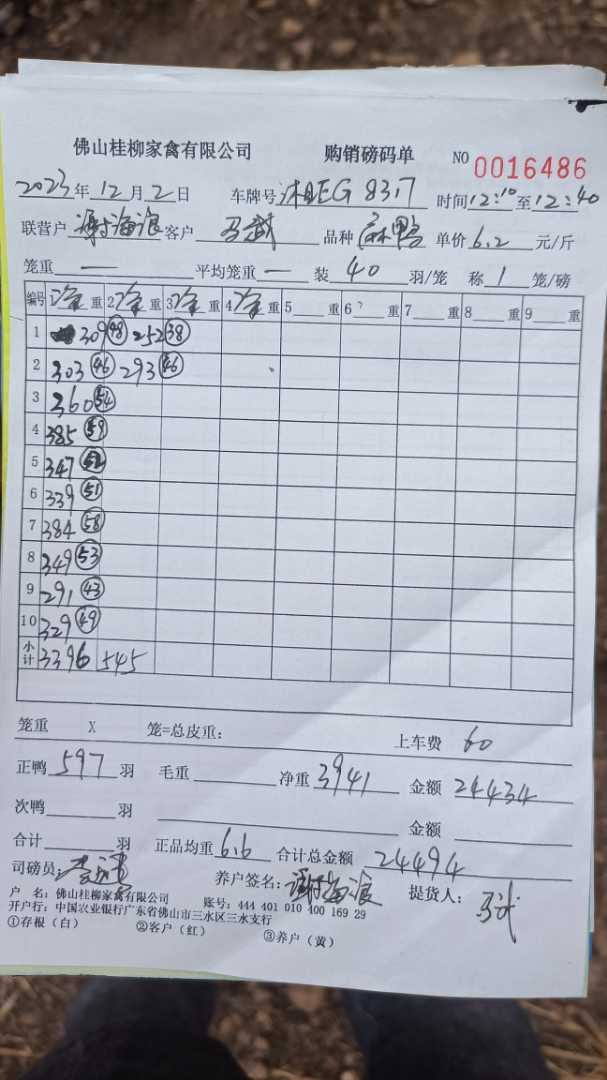 佛山桂柳家禽有限公司 购销磅码单 NO 0016486
2023年12月2日 车牌号 湘EG8317 时间12:10至12:40
联营户 海浪 客户 马武 品种 麻鸭 单价6.2元/斤
笼重 — 平均笼重 — 装 40 羽/笼 称 1 笼/磅
编号 1净重 2净重 3净重 4净重 5 重 6 重 7 重 8 重 9 重
1 309 48 252 38
2 303 46 293 46
3 360 54
4 385 59
5 347 52
6 339 51
7 384 58
8 349 53
9 291 43
10 329 49
小计 3396 545
笼重 X 笼=总皮重: 上车费 60
正鸭 597 羽 毛重 净重 3941 金额 24434
次鸭 羽 金额
合计 羽 正品均重 6.6 合计总金额 24494
司磅员: 养户签名: 海浪 提货人: 马武
户 名: 佛山桂柳家禽有限公司 账号: 444 401 010 400 169 29
开户行: 中国农业银行广东省佛山市三水区三水支行
①存根（白） ②客户（红） ③养户（黄）